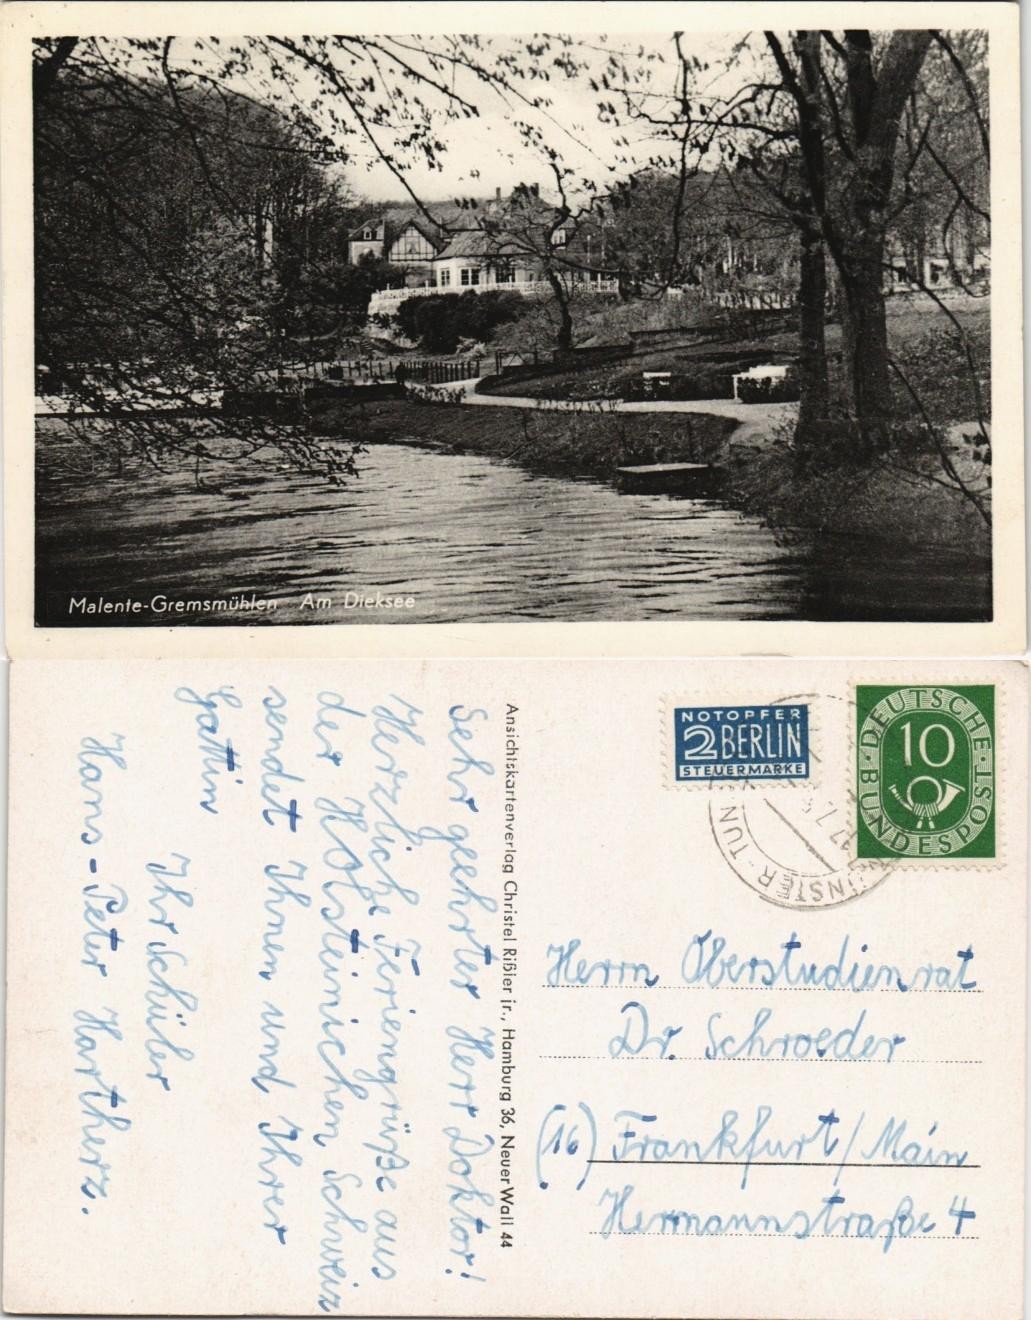 Malente-Gremsmühlen Am Dieksee
Sehr geehrter Herr Doktor!
Herzliche Feriengrüße aus
der Holsteinichen Schweiz
sendet Ihnen und Ihrer
Gattin
Ihr Schüler
Hans-Peter Hartherz.
Ansichtskartenverlag Christel Rißler jr., Hamburg 36, Neuer Wall 44
NOTOPFER
2 BERLIN
STEUERMARKE
DEUTSCHE
BUNDESPOST
10
Herrn Oberstudienrat
Dr. Schroeder
(16) Frankfurt/Main
Hermannstraße 4